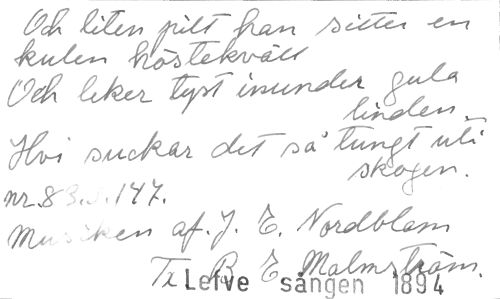 Och liten pilt han sitter en
kulen höstekväll
Och leker tyst inunder gula
linden.
Hvi suckar det så tungt uti
skogen.
nr. 83. s. 147.
Musiken af. J. E. Nordblom
Tx B E Malmström.
Lefve sången 1894